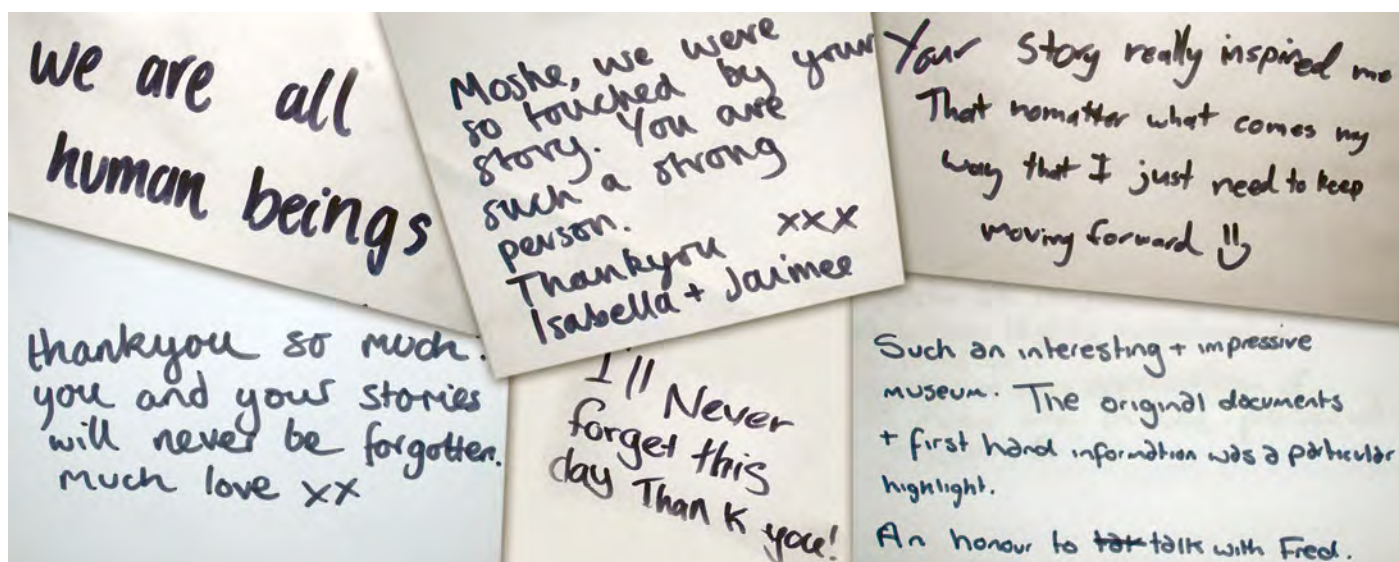 we are all
human beings
Moshe, we were
so touched by your
story. You are
such a strong
person.
Thankyou xxx
Isabella + Jaimee
Your story really inspired me
That nomatter what comes my
way that I just need to keep
moving forward
thankyou so much.
you and your stories
will never be forgotten.
much love xx
I'll Never
forget this
day Thank you!
Such an interesting + impressive
museum. The original documents
+ first hand information was a particular
highlight.
An honour to talk with Fred.